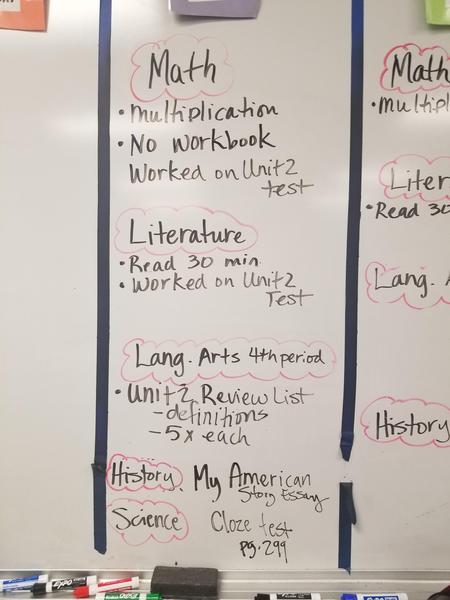 Math
• Multiplication
• No workbook
Worked on Unit 2
test
Literature
• Read 30 min.
• Worked on Unit 2
Test
Lang. Arts 4th period
• Unit 2 Review List
- definitions
- 5x each
History. My American
Story Essay
Science Cloze test
pg. 299
Math
• Multipl
Liter
• Read 30
Lang. A
History
EXPO